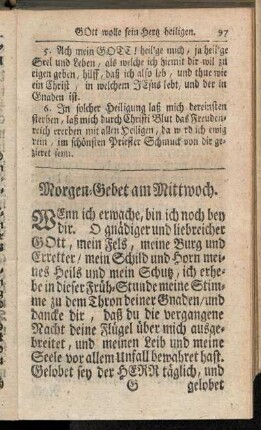 GOtt wolle sein Hertz heiligen. 97
5. Ach mein GOTT! heil'ge mich, ja heil'ge
Seel und Leben, als welche ich hiemit dir wil zu
eigen geben, hilff, daß ich also leb, und thue wie
ein Christ, in welchem JEsus lebt, und der in
Gnaden ist.
6. In solcher Heiligung laß mich dereinsten
sterben, laß mich durch Christi Blut das Freuden-
reich ererben mit allen Heiligen, da w rd ich ewig
rein, im schönsten Priester Schmuck von dir ge-
zieret seyn.
Morgen-Gebet am Mittwoch.
WEnn ich erwache, bin ich noch bey
dir. O gnädiger und liebreicher
GOtt, mein Fels, meine Burg und
Erretter/ mein Schild und Horn mei-
nes Heils und mein Schutz, ich erhe-
be in dieser Früh-Stunde meine Stim-
me zu dem Thron deiner Gnaden/und
dancke dir, daß du die vergangene
Nacht deine Flügel über mich ausge-
breitet, und meinen Leib und meine
Seele vor allem Unfall bewahret hast.
Gelobet sey der HERR täglich, und
G gelobet